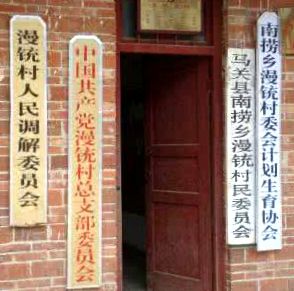 漫铳村人民调解委员会
中国共产党漫铳村总支部委员会
马关县南捞乡漫铳村民委员会
南捞乡漫铳村委会计划生育协会